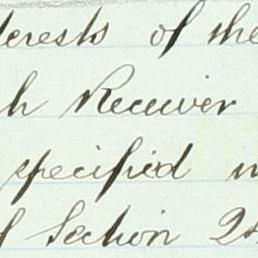 terests of the
h Receiver
specified
Section 2